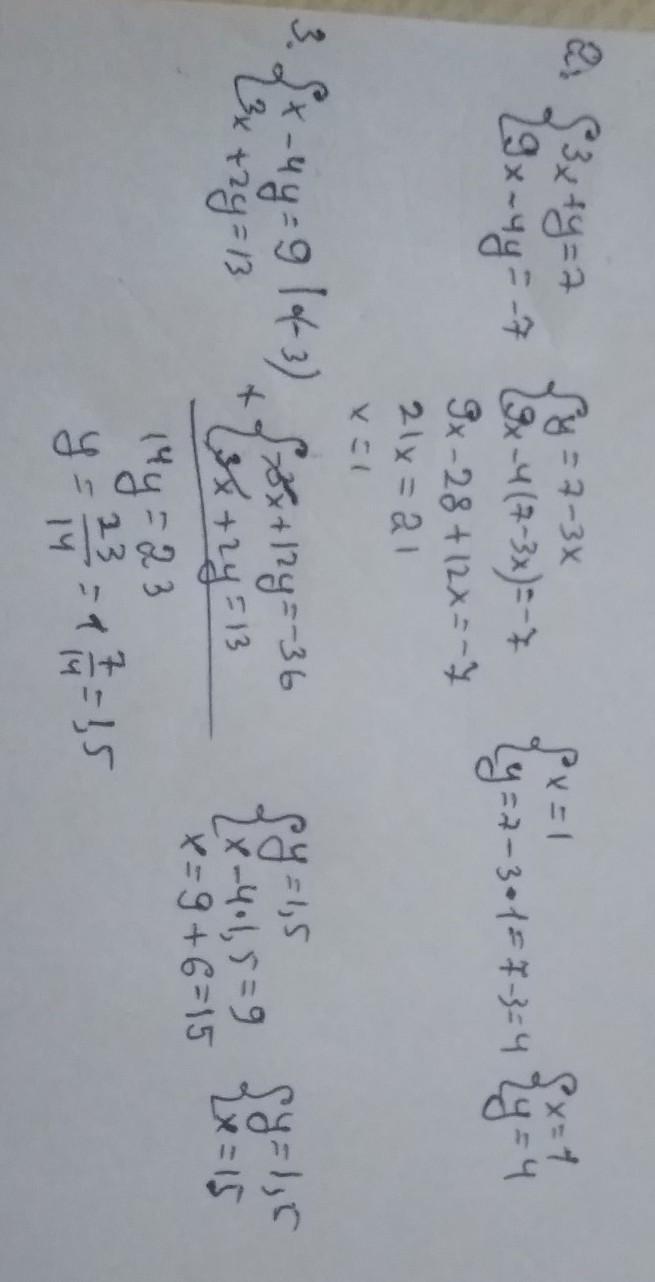 2. {3x+y=7
{9x-4y=-7
{y=7-3x
{9x-4(7-3x)=-7
9x-28+12x=-7
21x=21
x=1
{x=1
{y=7-3•1=7-3=4
{x=1
{y=4
3. {x-4y=9 |·(-3)
{3x+2y=13
+ {-3x+12y=-36
{3x+2y=13
14y=23
y=23/14=1 7/14=1,5
{y=1,5
{x-4•1,5=9
x=9+6=15
{y=1,5
{x=15